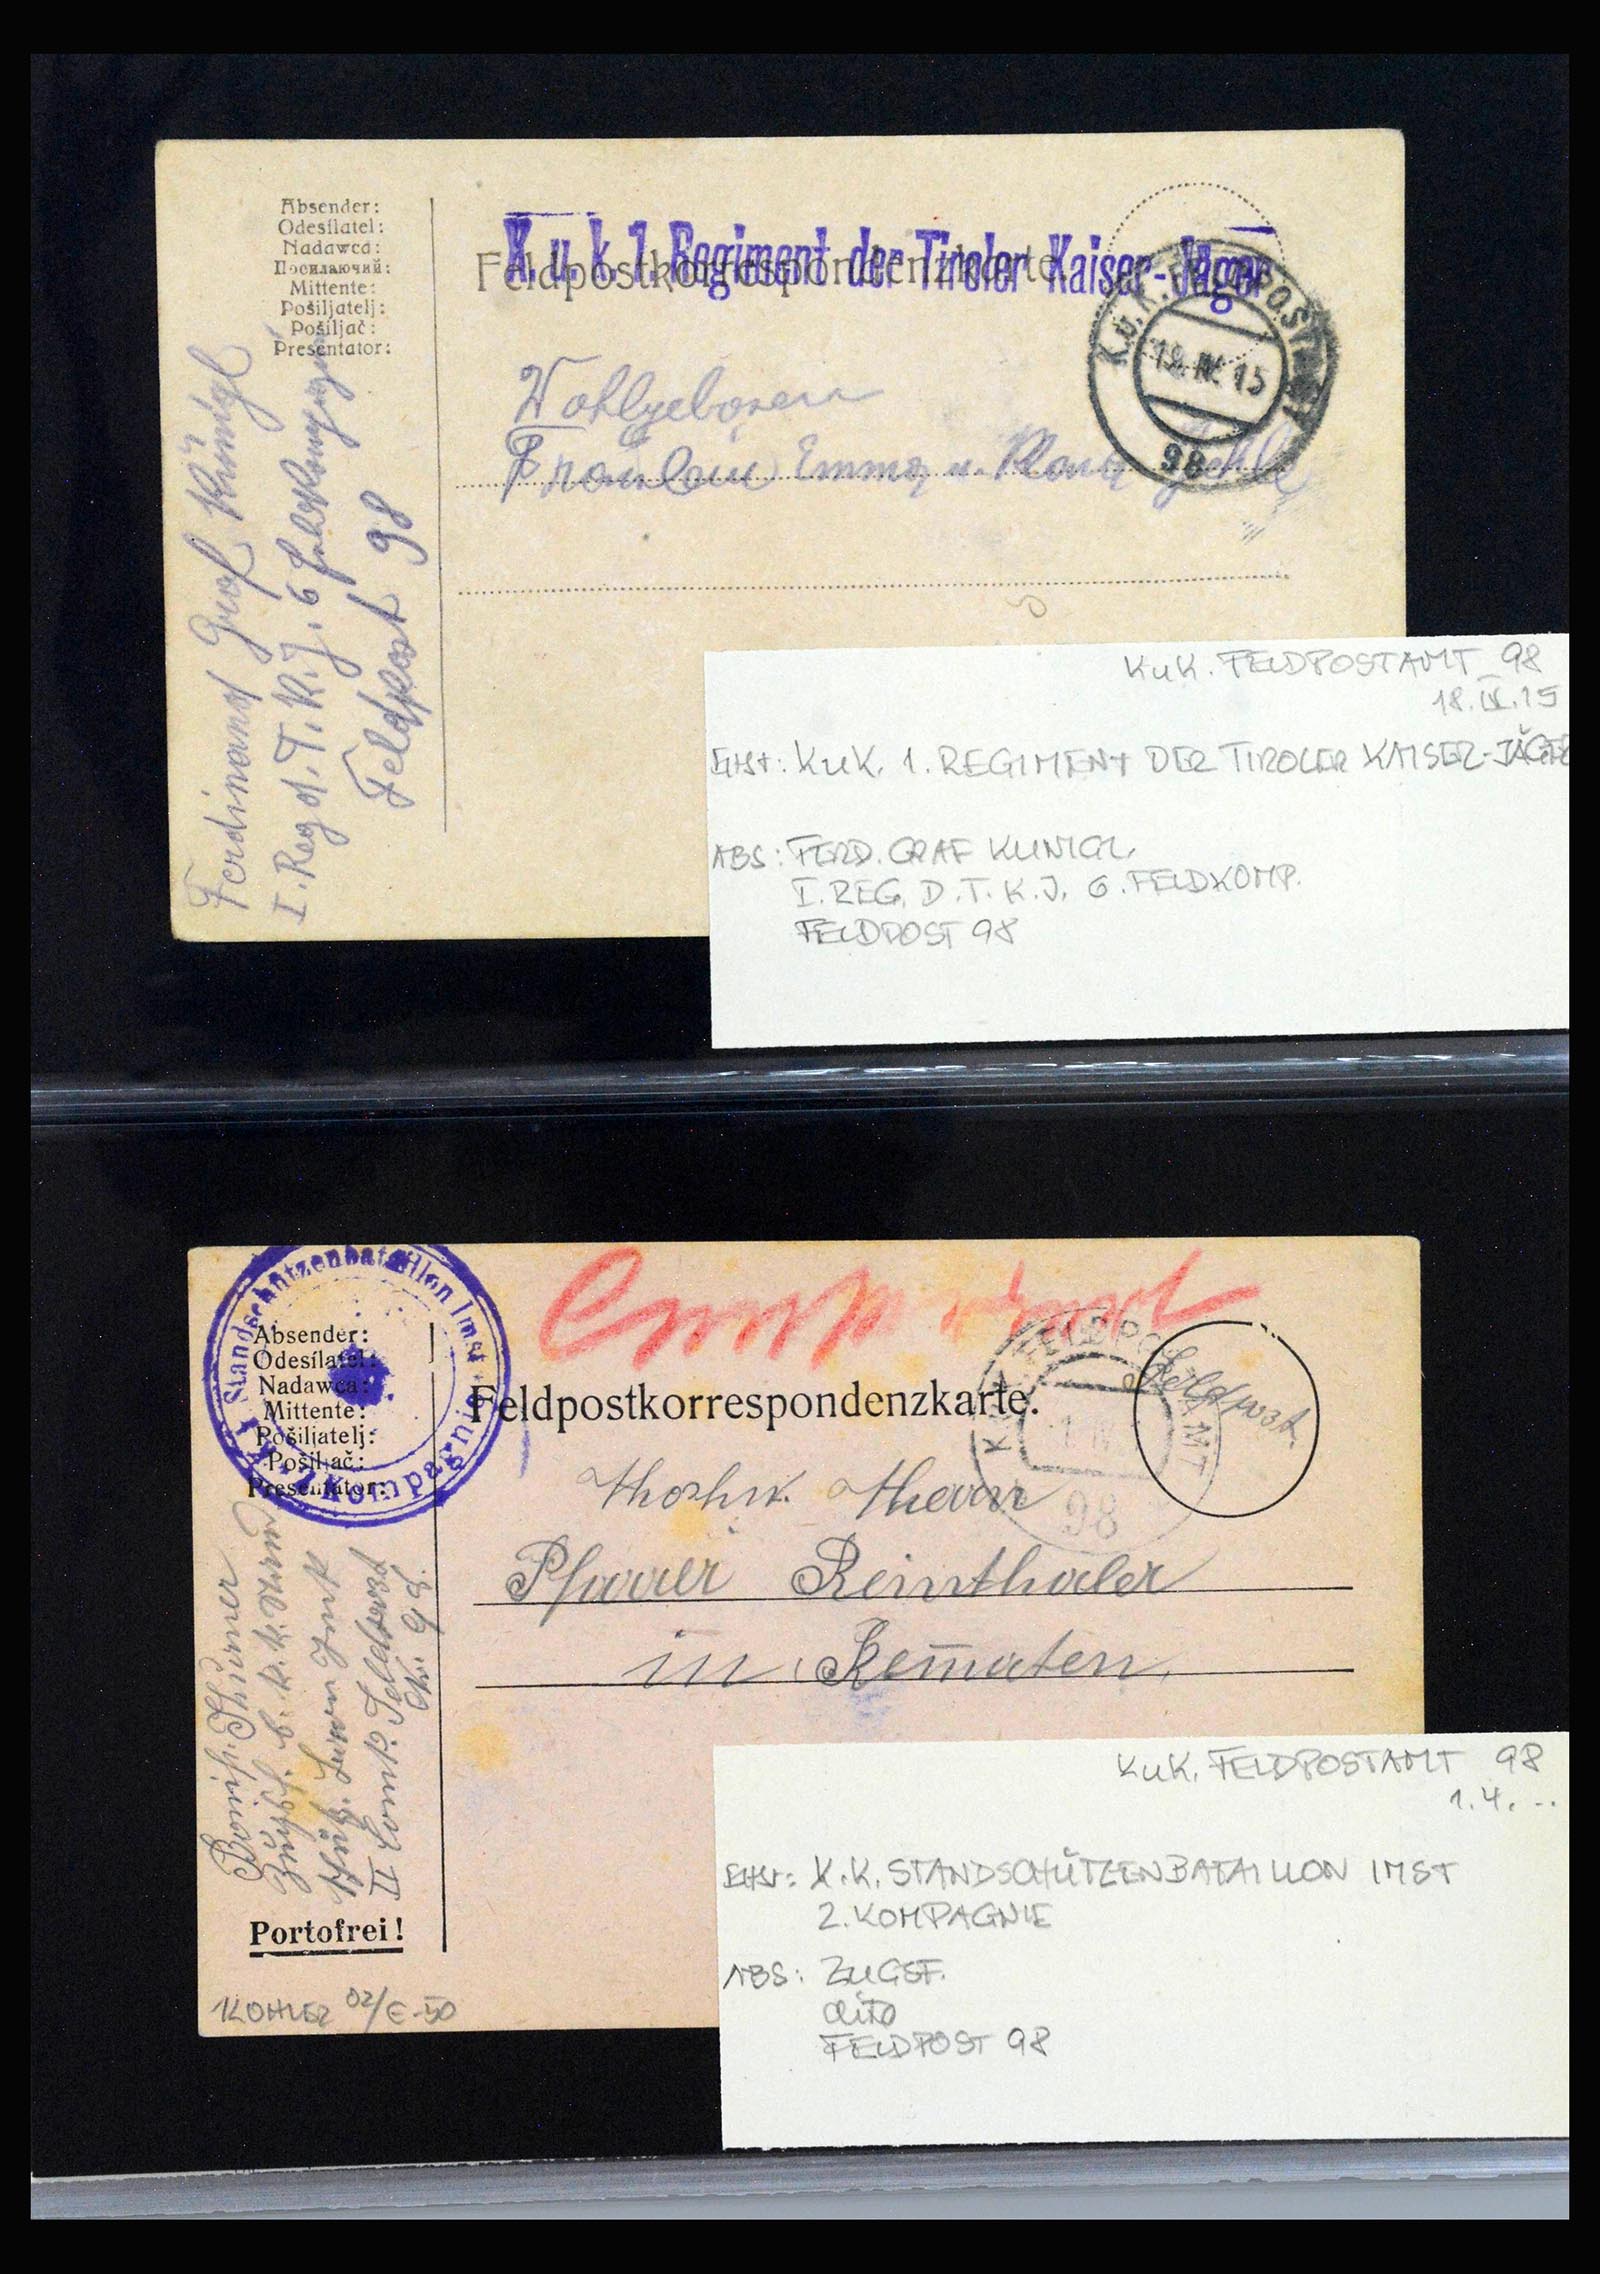 Absender:
Odesílatel:
Nadawca:
Посилаючий:
Mittente:
Pošiljatelj:
Pošiljač:
Presentator:
K. u. k. 1. Regiment der Tiroler Kaiser-Jäger
Feldpostkorrespondenzkarte
K.u.K. FELDPOSTAMT
18. IV. 15
98
Wohlgeboren
Fräulein Emma u.
Ferdinand Graf Künigl
I. Reg d. T. K. J. 6 Feldkompagnie
Feldpost 98
KuK. FELDPOSTAMT 98
18. IV. 15
KuK. 1. REGIMENT DER TIROLER KAISER-JÄGER
ABS: FERD. GRAF KUNIGL.
I. REG. D. T. K. J. 6. FELDKOMP.
FELDPOST 98
Standschützenbataillon Imst
2. Kompagnie
Absender:
Odesílatel:
Nadawca:
Mittente:
Pošiljatelj:
Pošiljač:
Presentator:
Feldpostkorrespondenzkarte.
FELDPOSTAMT
98
Feldpost.
Herrn
Pfarrer Reinthaler
in Kematen
Thurner
II Komp. Feldpost
No. 98.
Portofrei!
KOHLER 02/€-50
KuK. FELDPOSTAMT 98
1. 4. --
K. K. STANDSCHÜTZENBATAILLON IMST
2. KOMPAGNIE
ABS: ZUGSF.
dito
FELDPOST 98